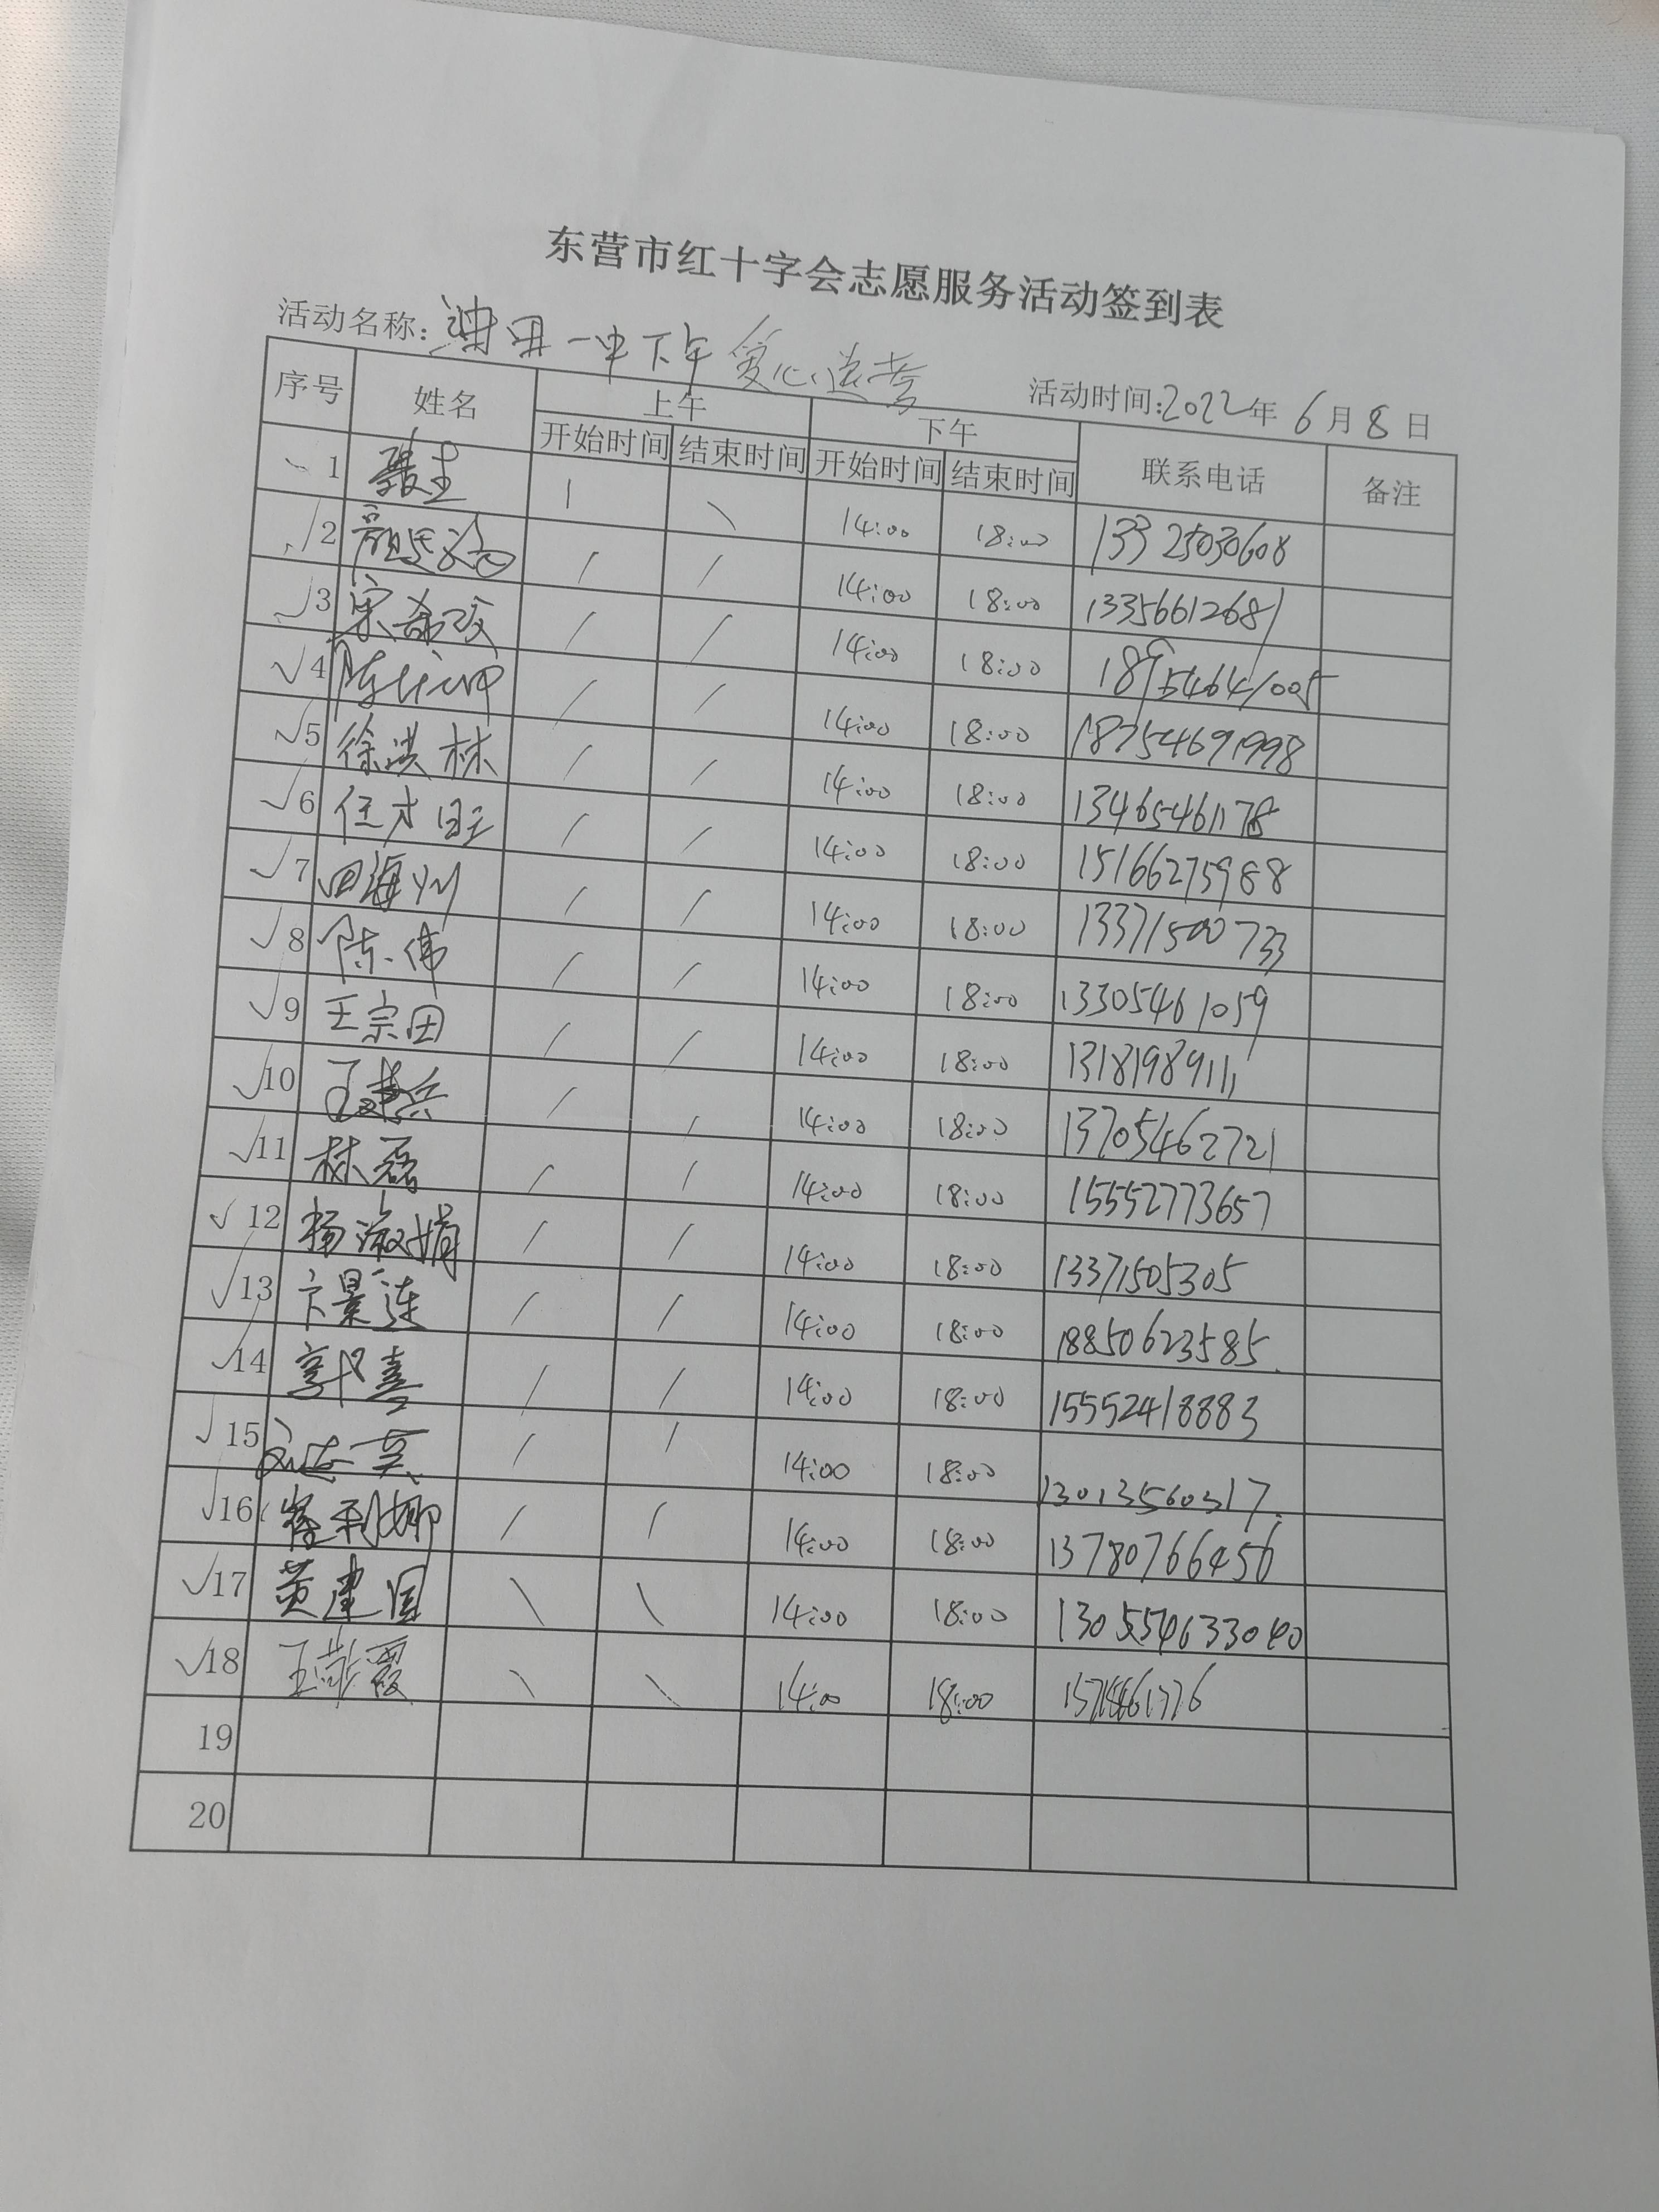 东营市红十字会志愿服务活动签到表
活动名称: 油田一中下午爱心送考 活动时间:2022年6月8日
序号 姓名 上午 下午 联系电话 备注
开始时间 结束时间 开始时间 结束时间
1 / \ 14:00 18:00 13325030608
2 / / 14:00 18:00 13356612681
3 / / 14:00 18:00 18954641005
4 / / 14:00 18:00 18754691998
5 徐洪林 / / 14:00 18:00 13465461178
6 任才旺 / / 14:00 18:00 15166275988
7 田海州 / / 14:00 18:00 13371500733
8 陈伟 / / 14:00 18:00 13305461059
9 王宗田 / / 14:00 18:00 13181989111
10 王建兵 / / 14:00 18:00 13705462721
11 林磊 / / 14:00 18:00 15552773657
12 杨淑娟 / / 14:00 18:00 13371505305
13 卞景连 / / 14:00 18:00 18850623585
14 郭喜 / / 14:00 18:00 15552418883
15 / / 14:00 18:00 13013560317
16 崔利娜 / / 14:00 18:00 13780766456
17 黄建国 \ \ 14:00 18:00
18 \ \ 14:00 18:00
19
20